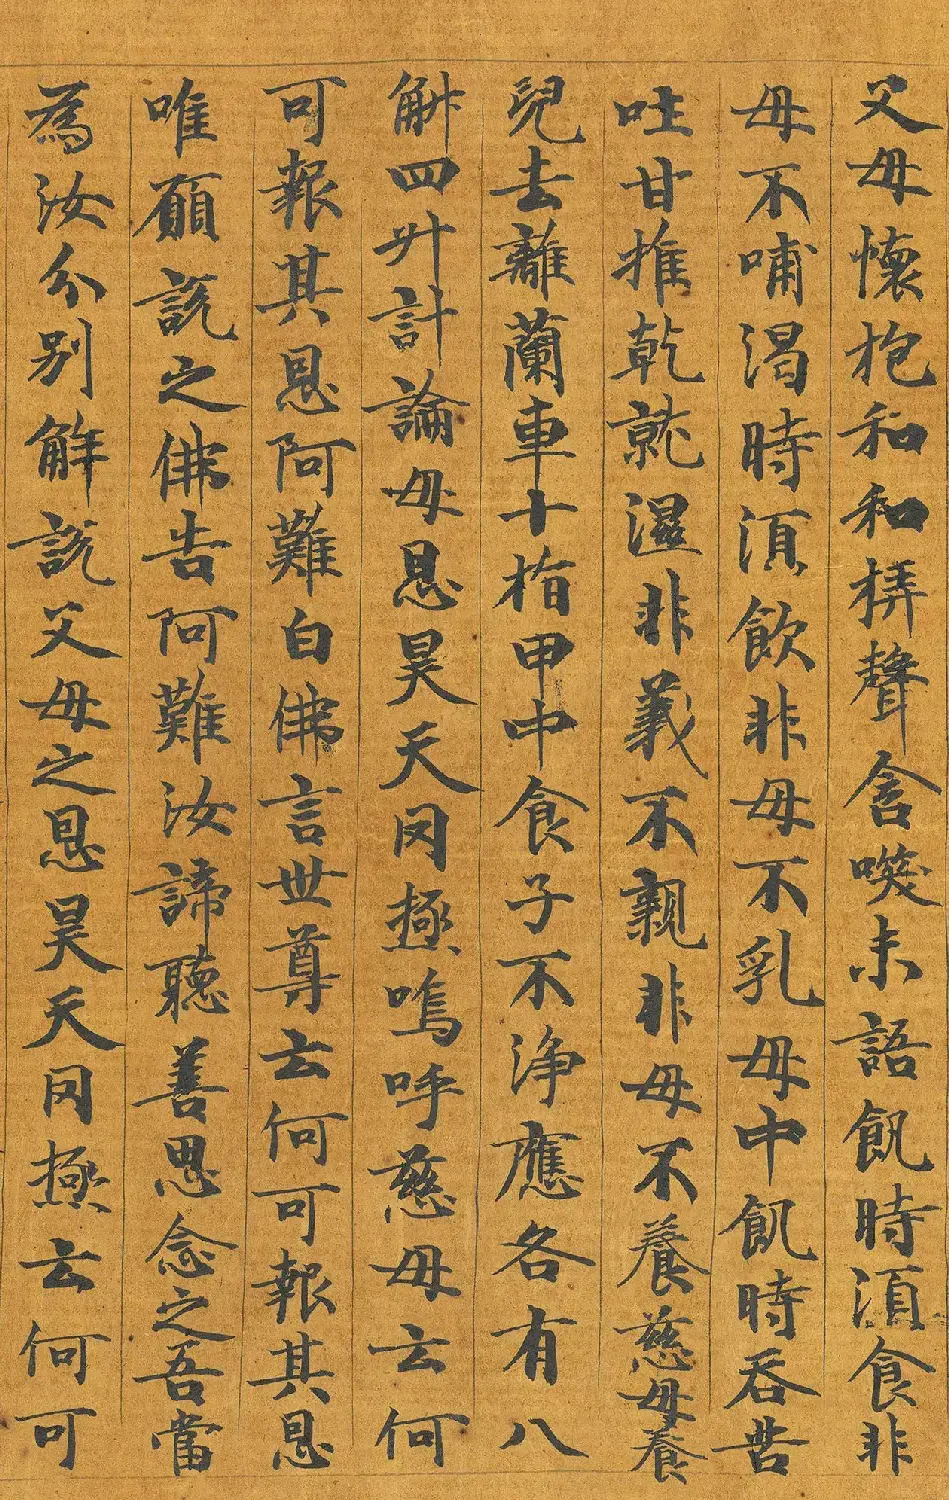 父母懷抱和和㧳聲含㗛未語飢時須食非
母不哺渴時須飲非母不乳母中飢時吞苦
吐甘推乾就濕非義不親非母不養慈母養
兒去離蘭車十指甲中食子不淨應各有八
斛四升計論母恩昊天罔極嗚呼慈母云何
可報其恩阿難白佛言世尊云何可報其恩
唯願說之佛告阿難汝諦聽善思念之吾當
為汝分別解說父母之恩昊天罔極云何可